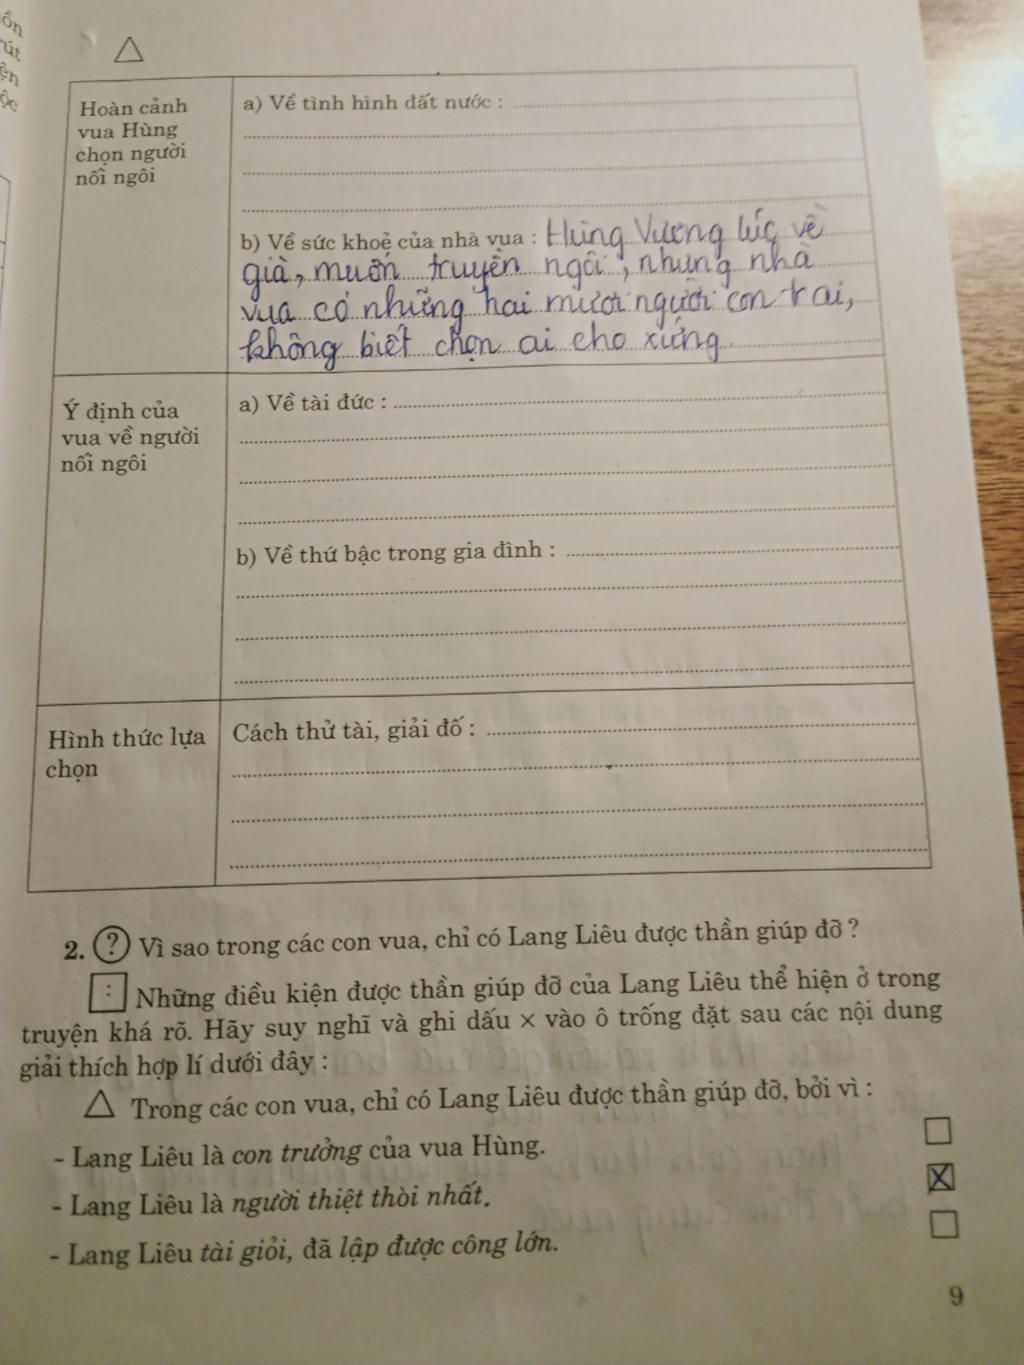 ồn
rút
ện
ộc
Hoàn cảnh
vua Hùng
chọn người
nối ngôi
a) Về tình hình đất nước :
b) Về sức khoẻ của nhà vua : Hùng Vương lúc về
già, muốn truyền ngôi, nhưng nhà
vua có những hai mươi người con trai,
không biết chọn ai cho xứng
Ý định của
vua về người
nối ngôi
a) Về tài đức :
b) Về thứ bậc trong gia đình :
Hình thức lựa
chọn
Cách thử tài, giải đố :
2. (?) Vì sao trong các con vua, chỉ có Lang Liêu được thần giúp đỡ ?
: Những điều kiện được thần giúp đỡ của Lang Liêu thể hiện ở trong
truyện khá rõ. Hãy suy nghĩ và ghi dấu × vào ô trống đặt sau các nội dung
giải thích hợp lí dưới đây :
Trong các con vua, chỉ có Lang Liêu được thần giúp đỡ, bởi vì :
- Lang Liêu là con trưởng của vua Hùng.
- Lang Liêu là người thiệt thòi nhất. X
- Lang Liêu tài giỏi, đã lập được công lớn.
9